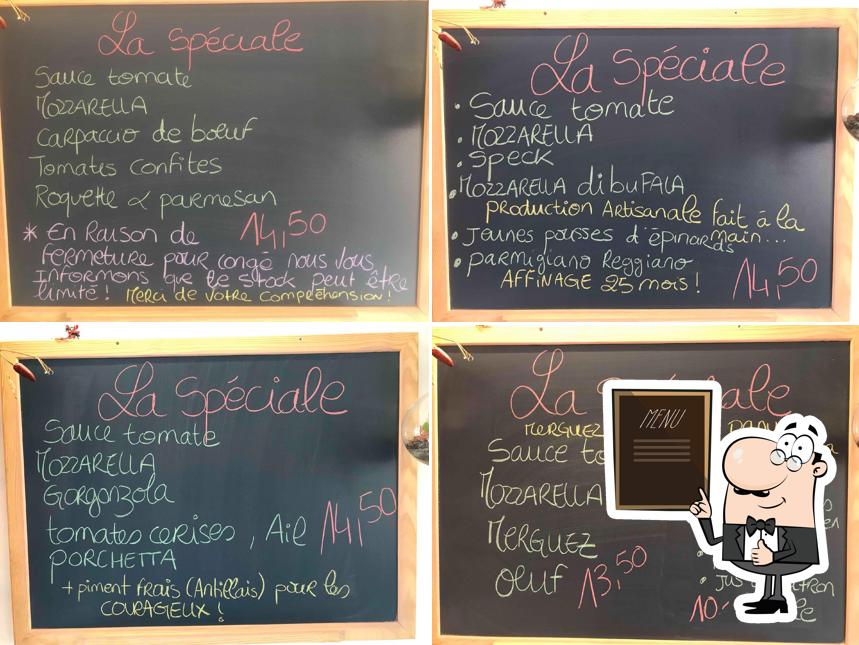 La Spéciale
Sauce tomate
MOZZARELLA
Carpaccio de bœuf
Tomates confites
Roquette & parmesan
14,50
* En Raison de
fermeture pour congé nous vous
informons que le stock peut être
limité ! Merci de votre compréhension !
La Spéciale
• Sauce tomate
• MOZZARELLA
• Speck
• MOZZARELLA di buFALA
PRODUCTION Artisanale fait à la
main...
• Jeunes pousses d'épinards
• parmigiano Reggiano
AFFINAGE 25 mois !
14,50
La Spéciale
Sauce tomate
MOZZARELLA
Gorgonzola
tomates cerises, Ail
PORCHETTA
14,50
+ piment frais (Antillais) pour les
COURAGEUX !
La
MERGUEZ
Sauce
MOZZARELLA
MERGUEZ
Oeuf
13,50
• Jus
10
MENU